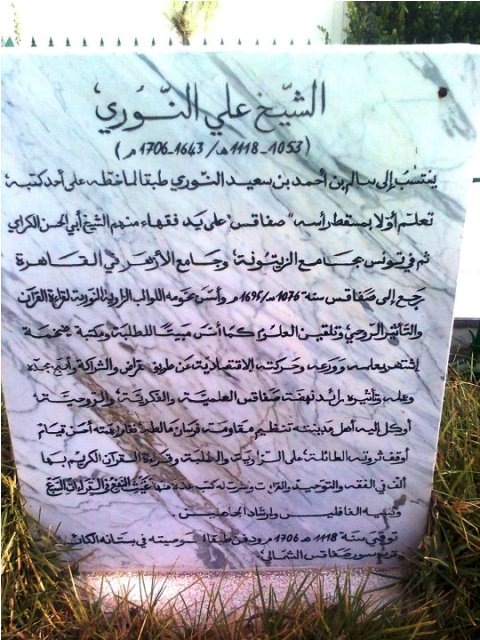 الشيّخ علي النّوري
(1053_1118 هـ/ 1643_1706 م)
ينتسب إلى سالم بن أحمد بن سعيد النّوري طبقا لما خطه على أحد كتبه
تعلم أوّلا بمسقط رأسه "صفاقس" على يد فقهاء منهم الشيخ أبي الحسن الكراي
ثم في تونس بجامع الزيتونة، وجامع الأزهر في القاهرة
رجع إلى صفاقس سنة 1076 هـ/1695 م وأسّس الزاوية النّورية لقراءة القرآن
والتأثير الرّوحي وتلقين العلوم كما أسّس مبيتا للطلبة ومكتبة ضخمة
إشتهر بعلمه وورعه وحركته الاقتصاديّة عن طريق والشراكة
وعلمه وتأثيره رائد نهضة صفاقس العلميّة، والفكريّة، والرّوحيّة.
أوكل إليه أهل مدينته تنظيم مقاومة فرسان مالطة فقام بذلك أحسن قيام
أوقف ثروته الطائلة على الزاوية والطلبة وقراءة القرآن الكريم بها
ألّف في الفقه والتوحيد والقراءات كتبه عدّة منها غيث النفع في القراءات السبع
وتنبيه الغافلين وإرشاد الجاهلين
توفي سنة 1118 هـ 1706 م ودفن طبقا لوصيته في بستانه الكائن
قرب سور صفاقس الشمالي.